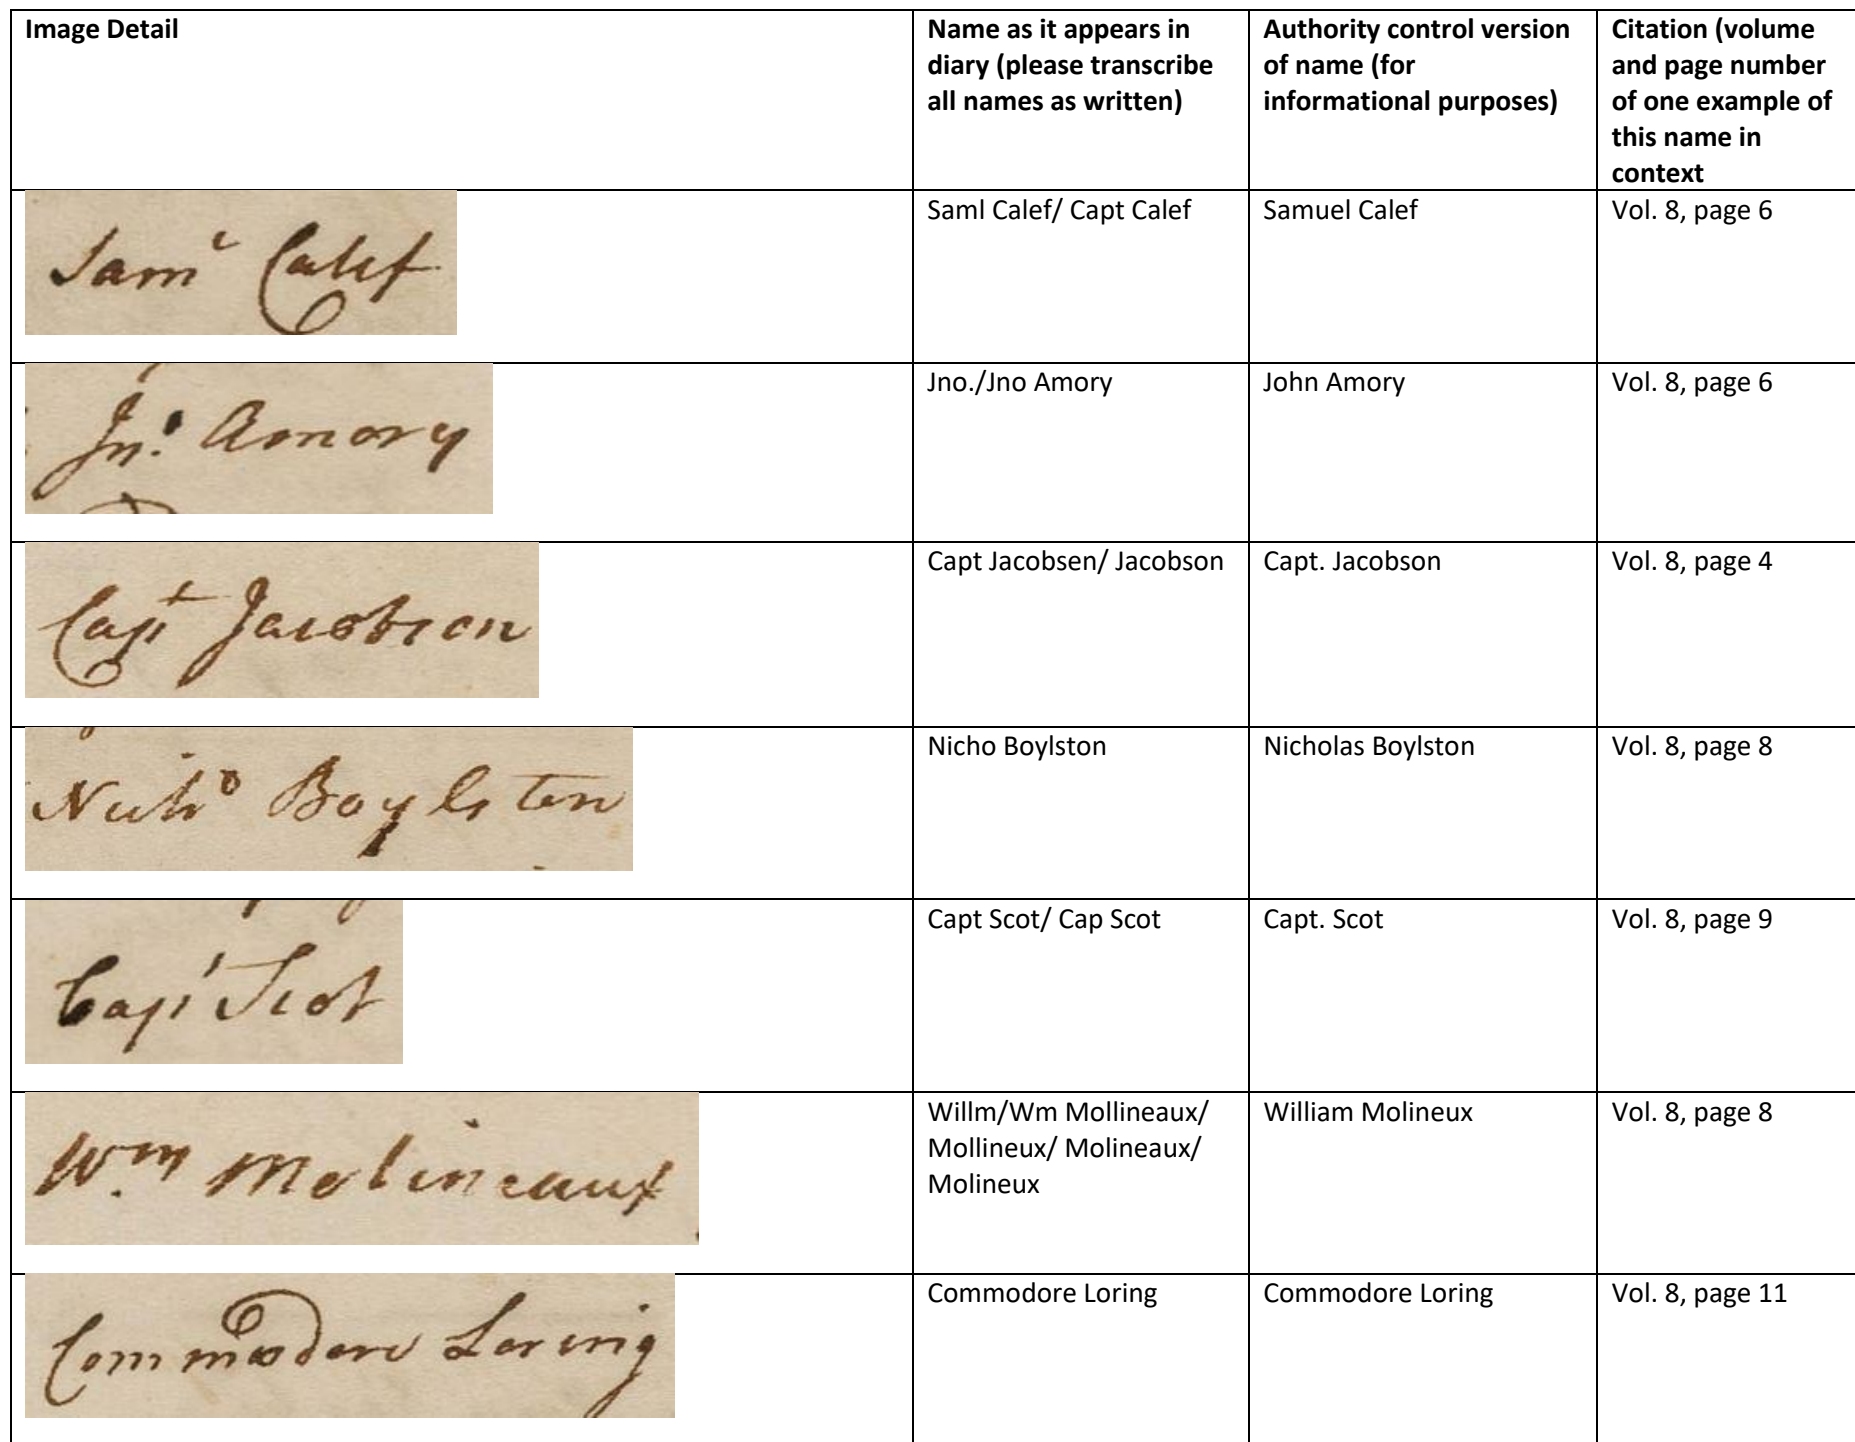 Image Detail
Name as it appears in
diary (please transcribe
all names as written)
Authority control version
of name (for
informational purposes)
Citation (volume
and page number
of one example of
this name in
context
Saml Calef
Saml Calef/ Capt Calef
Samuel Calef
Vol. 8, page 6
Jno. Amory
Jno./Jno Amory
John Amory
Vol. 8, page 6
Capt Jacobson
Capt Jacobsen/ Jacobson
Capt. Jacobson
Vol. 8, page 4
Nicho Boylston
Nicho Boylston
Nicholas Boylston
Vol. 8, page 8
Capt Scot
Capt Scot/ Cap Scot
Capt. Scot
Vol. 8, page 9
Wm Molineaux
Willm/Wm Mollineaux/
Mollineux/ Molineaux/
Molineux
William Molineux
Vol. 8, page 8
Commodore Loring
Commodore Loring
Commodore Loring
Vol. 8, page 11